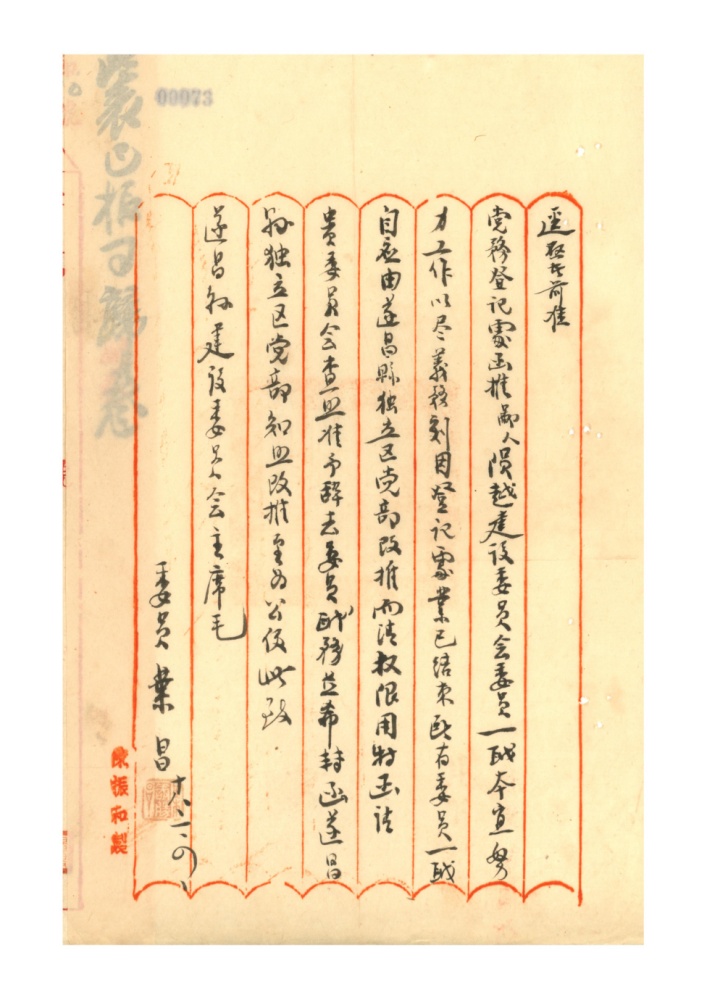 00073
迳启者前准
党務登记處函推鄙人陨越建设委员会委员一职本宜努
力工作以尽義務刻因登记處業已结束所有委员一职
自应由遂昌縣独立区党部改推而清权限用特函请
贵委员会查照准予辞去委员职務並希转函遂昌
縣独立区党部知照改推至为公便此致
遂昌縣建设委员会主席毛
委员 葉昌
陳振和製